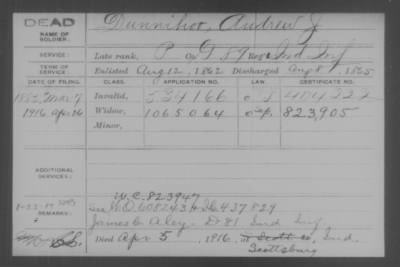 DEAD
NAME OF SOLDIER:
Dunnihoo, Andrew J.
SERVICE:
Late rank, P Co G 59 Reg't Ind Inf
TERM OF SERVICE:
Enlisted Aug 12, 1862 Discharged Aug 8, 1865
DATE OF FILING. CLASS. APPLICATION NO. LAW. CERTIFICATE NO.
Invalid, 534166
1916 Apr 26 Widow, 1065064 823,905
Minor,
ADDITIONAL SERVICES:
W.C. 823947
REMARKS:
James C. Aley, D 81 Ind Inf
Died Apr 5, 1916, at Scott co, Ind.
Scottsburg